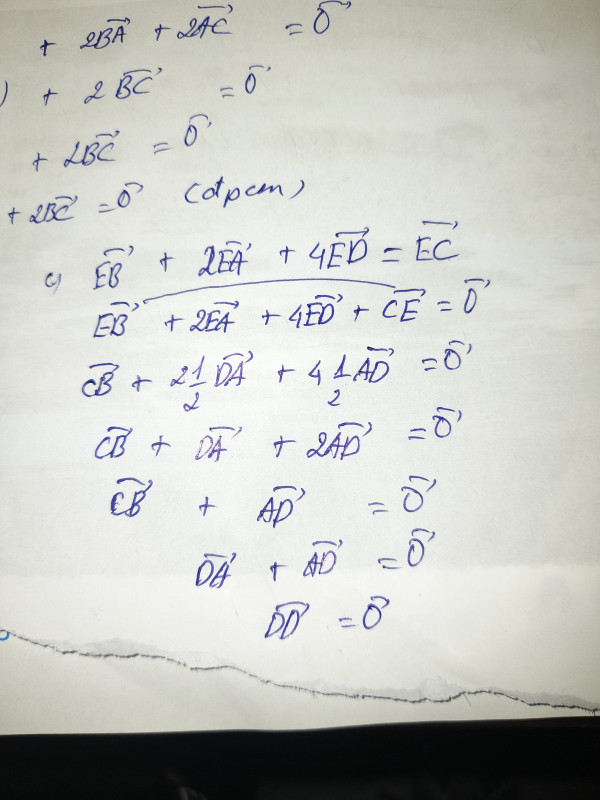 + 2BA⃗ + 2AC⃗ = O⃗
) + 2BC⃗ = O⃗
+ 2BC⃗ = O⃗
+ 2BC⃗ = O⃗
c) EB⃗ + 2EA⃗ + 4ED⃗ = EC⃗
EB⃗ + 2EA⃗ + 4ED⃗ + CE⃗ = O⃗
CB⃗ + 2 1/2 DA⃗ + 4 1/2 AD⃗ = O⃗
CB⃗ + DA⃗ + 2AD⃗ = O⃗
CB⃗ + AD⃗ = O⃗
DA⃗ + AD⃗ = O⃗
DD⃗ = O⃗